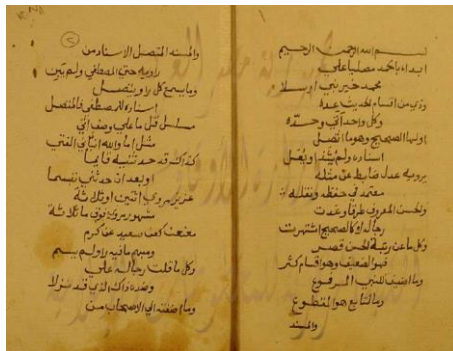 بسم الله الرحمن الرحيم
ابدا بالحمد مصليا على
محمد خير نبي ارسلا
وذي من اقسام الحديث عده
وكل واحد اتى وحده
اولها الصحيح وهو ما اتصل
اسناده ولم يشذ او يعل
يرويه عدل ضابط عن مثله
معتمد في حفظه ونقله
والحسن المعروف طرقا وغدت
رجاله لا كالصحيح اشتهرت
وكل ما عن رتبة الحسن قصر
فهو الضعيف وهو اقسام كثر
وما اضيف للنبي المرفوع
وما لتابع هو المقطوع
والمسند
والمسند المتصل الاسناد من
راويه حتى المصطفى ولم يبن
وما بسمع كل راو يتصل
اسناده للمصطفى فالمتصل
مسلسل قل ما على وصف اتى
مثل اما والله انباني الفتى
كذاك قد حدثنيه قايما
او بعد ان حدثني تبسما
عزيز مروي اثنين او ثلاثة
مشهور مروي فوق ما ثلاثة
معنعن كعن سعيد عن كرم
ومبهم ما فيه راو لم يسم
وكل ما قلت رجاله على
وضده ذاك الذي قد نزلا
وما اضفته الى الاصحاب من